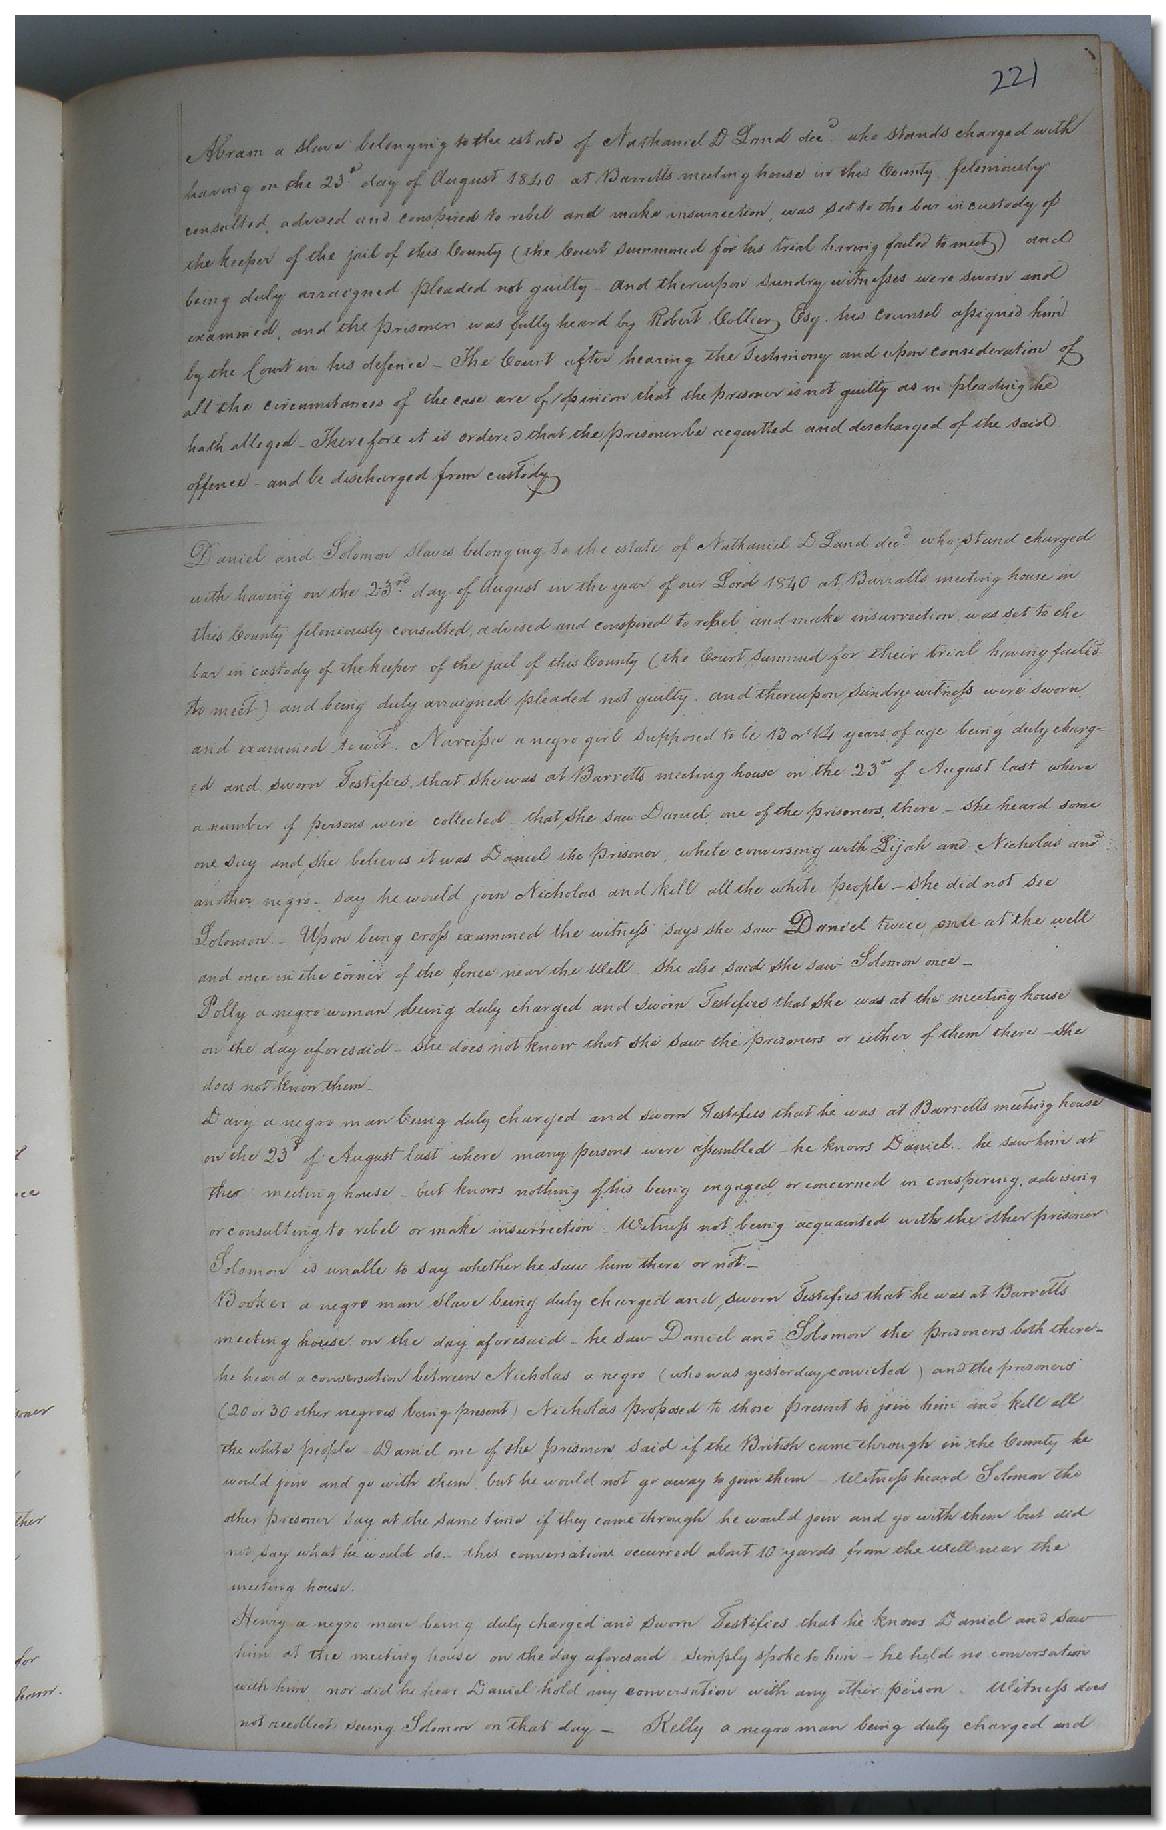 221
Abram a slave belonging to the estate of Nathaniel D Land decd. who stands charged with
having on the 23d day of August 1840 at Barretts meeting house in this County feloniously
consulted, advised and conspired to rebel and make insurrection, was set to the bar in custody of
the keeper of the jail of this County (the Court summoned for his trial having failed to meet) and
being duly arraigned pleaded not guilty - and thereupon sundry witnesses were sworn and
examined, and the prisoner was fully heard by Robert Collier Esq. his counsel assigned him
by the Court in his defence - The Court after hearing the Testimony and upon consideration of
all the circumstances of the case are of opinion that the prisoner is not guilty as in pleading he
hath alleged - Therefore it is ordered that the prisoner be acquitted and discharged of the said
offence - and be discharged from custody
Daniel and Solomon slaves belonging to the estate of Nathaniel D Land decd. who stand charged
with having on the 23rd day of August in the year of our Lord 1840 at Barratts meeting house in
this County feloniously consulted, advised and conspired to rebel and make insurrection, was set to the
bar in custody of the keeper of the jail of this County (the Court summd for their trial having failed
to meet) and being duly arraigned pleaded not guilty. and thereupon sundry witness were sworn
and examined to wit. Narcissa a negro girl supposed to be 13 or 14 years of age being duly charg-
ed and sworn Testifies, that she was at Barretts meeting house on the 23d of August last where
a number of persons were collected - that she saw Daniel one of the prisoners, there - she heard some
one say and she believes it was Daniel the prisoner, while conversing with Lijah and Nicholas and
another negro - say he would join Nicholas and kill all the white people - she did not see
Solomon - Upon being cross examined the witness says she saw Daniel twice once at the well
and once in the corner of the fence near the Well. She also said she saw Solomon once -
Polly a negro woman being duly charged and sworn Testifies that she was at the meeting house
on the day aforesaid - she does not know that she saw the prisoners or either of them there - she
does not know them -
Davy a negro man being duly charged and sworn Testifies that he was at Barretts meeting house
on the 23d of August last where many persons were assembled - he knows Daniel - he saw him at
the meeting house - but knows nothing of his being engaged or concerned in conspiring, advising
or consulting to rebel or make insurrection - Witness not being acquainted with the other prisoner
Solomon is unable to say whether he saw him there or not -
Booker a negro man slave being duly charged and sworn Testifies that he was at Barretts
meeting house on the day aforesaid - he saw Daniel and Solomon the prisoners both there -
he heard a conversation between Nicholas a negro (who was yesterday convicted) and the prisoners
(20 or 30 other negroes being present) Nicholas proposed to those present to join him and kill all
the white people - Daniel one of the prisoners said if the British came through in the County he
would join and go with them, but he would not go away to join them - Witness heard Solomon the
other prisoner say at the same time if they came through he would join and go with them but did
not say what he would do - this conversation occurred about 10 yards from the well near the
meeting house.
Henry a negro man being duly charged and sworn Testifies that he knows Daniel and saw
him at the meeting house on the day aforesaid simply spoke to him - he held no conversation
with him, nor did he hear Daniel hold any conversation with any other person. Witness does
not recollect seeing Solomon on that day - Kelly a negro man being duly charged and